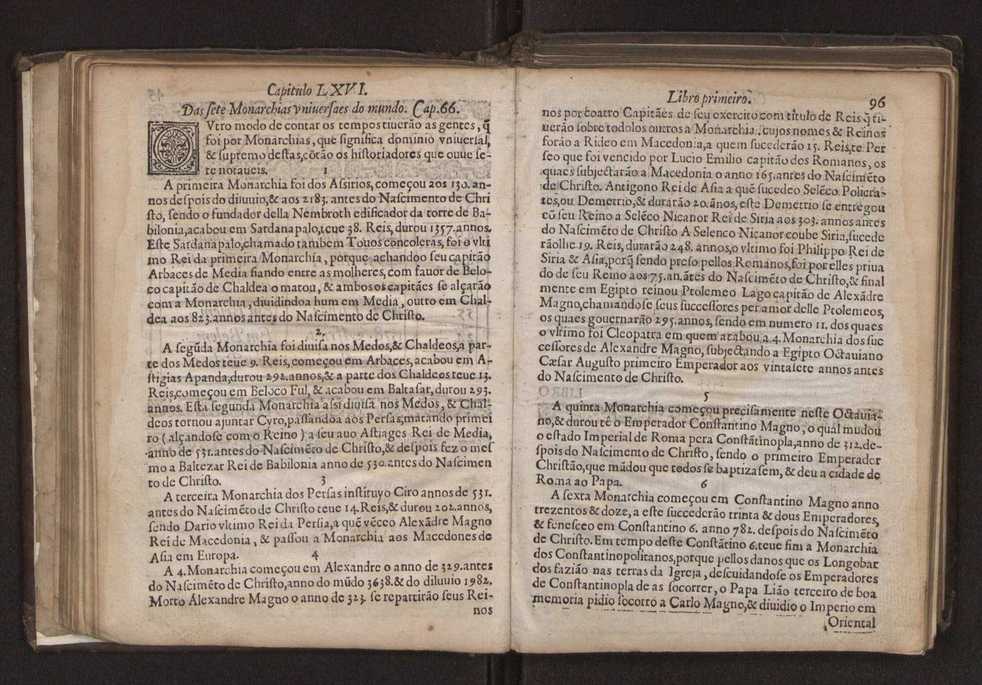 Capitulo LXVI.
Das sete Monarchias vniuersaes do mundo. Cap.66.
OVtro modo de contar os tempos tiuerão as gentes, q̃
foi por Monarchias, que significa dominio vniuersal,
& supremo destas, cõtão os historiadores que ouue se-
te notaueis. 1
A primeira Monarchia foi dos Assirios, começou aos 130. an-
nos despois do diluuio, & aos 2183. antes do Nascimento de Chri
sto, sendo o fundador della Nembroth edificador da torre de Ba-
bilonia, acabou em Sardanapalo, teue 38. Reis, durou 1357. annos.
Este Sardanapalo, chamado tambem Touos concoleras, foi o vlti
mo Rei da primeira Monarchia, porque achandoo seu capitão
Arbaces de Media fiando entre as molheres, com fauor de Belo-
co capitão de Chaldea o matou, & ambos os capitães se alçarão
com a Monarchia, diuidindoa hum em Media, outro em Chal-
dea aos 823. annos antes do Nascimento de Christo.
2.
A segũda Monarchia foi diuisa nos Medos, & Chaldeos, a par-
te dos Medos teue 9. Reis, começou em Arbaces, acabou em A-
stigias Apanda, durou 292. annos, & a parte dos Chaldeos teue 13.
Reis, começou em Beloco Ful, & acabou em Baltasar, durou 293.
annos. Esta segunda Monarchia assi diuisa nos Medos, & Chal-
deos tornou ajuntar Cyro, passandoa aos Persas, matando primei
ro (alçandose com o Reino) a seu auo Astiages Rei de Media,
anno de 531. antes do Nascimẽto de Christo, & despois fez o mes
mo a Baltezar Rei de Babilonia anno de 530. antes do Nascimen
to de Christo. 3
A terceira Monarchia dos Persas instituyo Ciro annos de 531.
antes do Nascimẽto de Christo teue 14. Reis, & durou 202. annos,
sendo Dario vltimo Rei da Persia, a quẽ vẽceo Alexãdre Magno
Rei de Macedonia, & passou a Monarchia aos Macedones de
Asia em Europa. 4
A 4. Monarchia começou em Alexandre o anno de 329. antes
do Nascimẽto de Christo, anno do mũdo 3638. & do diluuio 1982.
Morto Alexandre Magno o anno de 323. se repartirão seus Rei-
nos
Libro primeiro. 96
nos por coatro Capitães de seu exercito com titulo de Reis q̃ ti-
uerão sobre todolos outros a Monarchia, cujos nomes & Reinos
forão a Rideo em Macedonia, a quem sucederão 15. Reis, te Per
seo que foi vencido por Lucio Emilio capitão dos Romanos, os
quaes subjectarão a Macedonia o anno 165. antes do Nascimẽto
de Christo. Antigono Rei de Asia a quẽ sucedeo Selẽco Policra-
tes, ou Demetrio, & durarão 20. ãnos, este Demetrio se entregou
cõ seu Reino a Selẽco Nicanor Rei de Siria aos 303. annos antes
do Nascimẽto de Christo A Selenco Nicanor coube Siria, sucede
rãolhe 19. Reis, durarão 248. annos, o vltimo foi Philippo Rei de
Siria & Asia, porq̃ sendo preso pellos Romanos, foi por elles priua
do de seu Reino aos 75. an. ãtes do Nascimẽto de Christo, & final
mente em Egipto reinou Ptolemeo Lago capitão de Alexãdre
Magno, chamandose seus successores per amor delle Ptolemeos,
os quaes governarão 295. annos, sendo em numero 11. dos quaes
o vltimo foi Cleopatra em quem acabou a 4. Monarchia dos suc
cessores de Alexandre Magno, subjectando a Egipto Octauiano
Cæsar Augusto primeiro Emperador aos vintasete annos antes
do Nascimento de Christo.
5
A quinta Monarchia começou precisamente neste Octauia-
no, & durou tẽ o Emperador Constantino Magno, o qual mudou
o estado Imperial de Roma pera Constãtinopla, anno de 312. de-
spois do Nascimento de Christo, sendo o primeiro Emperador
Christão, que mãdou que todos se baptizasem, & deu a cidade de
Roma ao Papa. 6
A sexta Monarchia começou em Constantino Magno anno
trezentos & doze, a este succederão trinta & dous Emperadores,
& feneceo em Constantino 6. anno 782. despois do Nascimẽto
de Christo. Em tempo deste Constãtino 6. teue fim a Monarchia
dos Constantinopolitanos, porque pellos danos que os Longobar
dos fazião nas terras da Igreja, descuidandose os Emperadores
de Constantinopla de as socorrer, o Papa Lião terceiro de boa
memoria pidio socorro a Carlo Magno, & diuidio o Imperio em
Oriental